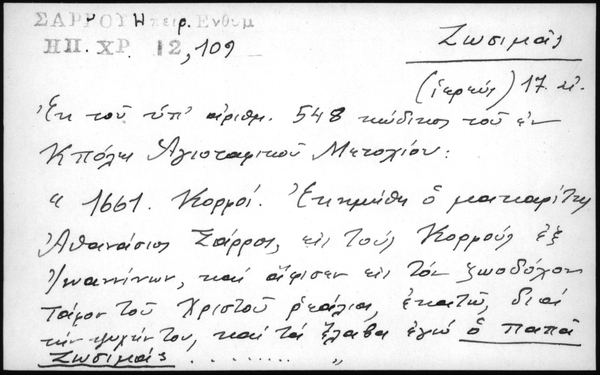 ΣΑΡΡΟΥ Ηπειρ. Ενθυμ
ΗΠ. ΧΡ 12, 109
Ζωσιμᾶς
(ἱερεύς) 17 αἰ.
Ἐκ τοῦ ὑπ' ἀριθμ. 548 κώδικος τοῦ ἐν
Κπόλει Ἁγιοταφικοῦ Μετοχίου:
" 1661. Κορμοί. Ἐκοιμήθη ὁ μακαρίτης
Ἀθανάσιος Σάρρος, εἰς τοὺς Κορμούς ἐξ
Ἰωαννίνων, καί ἄφισεν εἰς τόν ζωοδόχον
Τάφον τοῦ Χριστοῦ ρεάλια, ἑκατῶ, διά
τήν ψυχήν του, καί τά ἔλαβα ἐγώ ὁ παπᾶ
Ζωσιμᾶς . . . . . . . . "